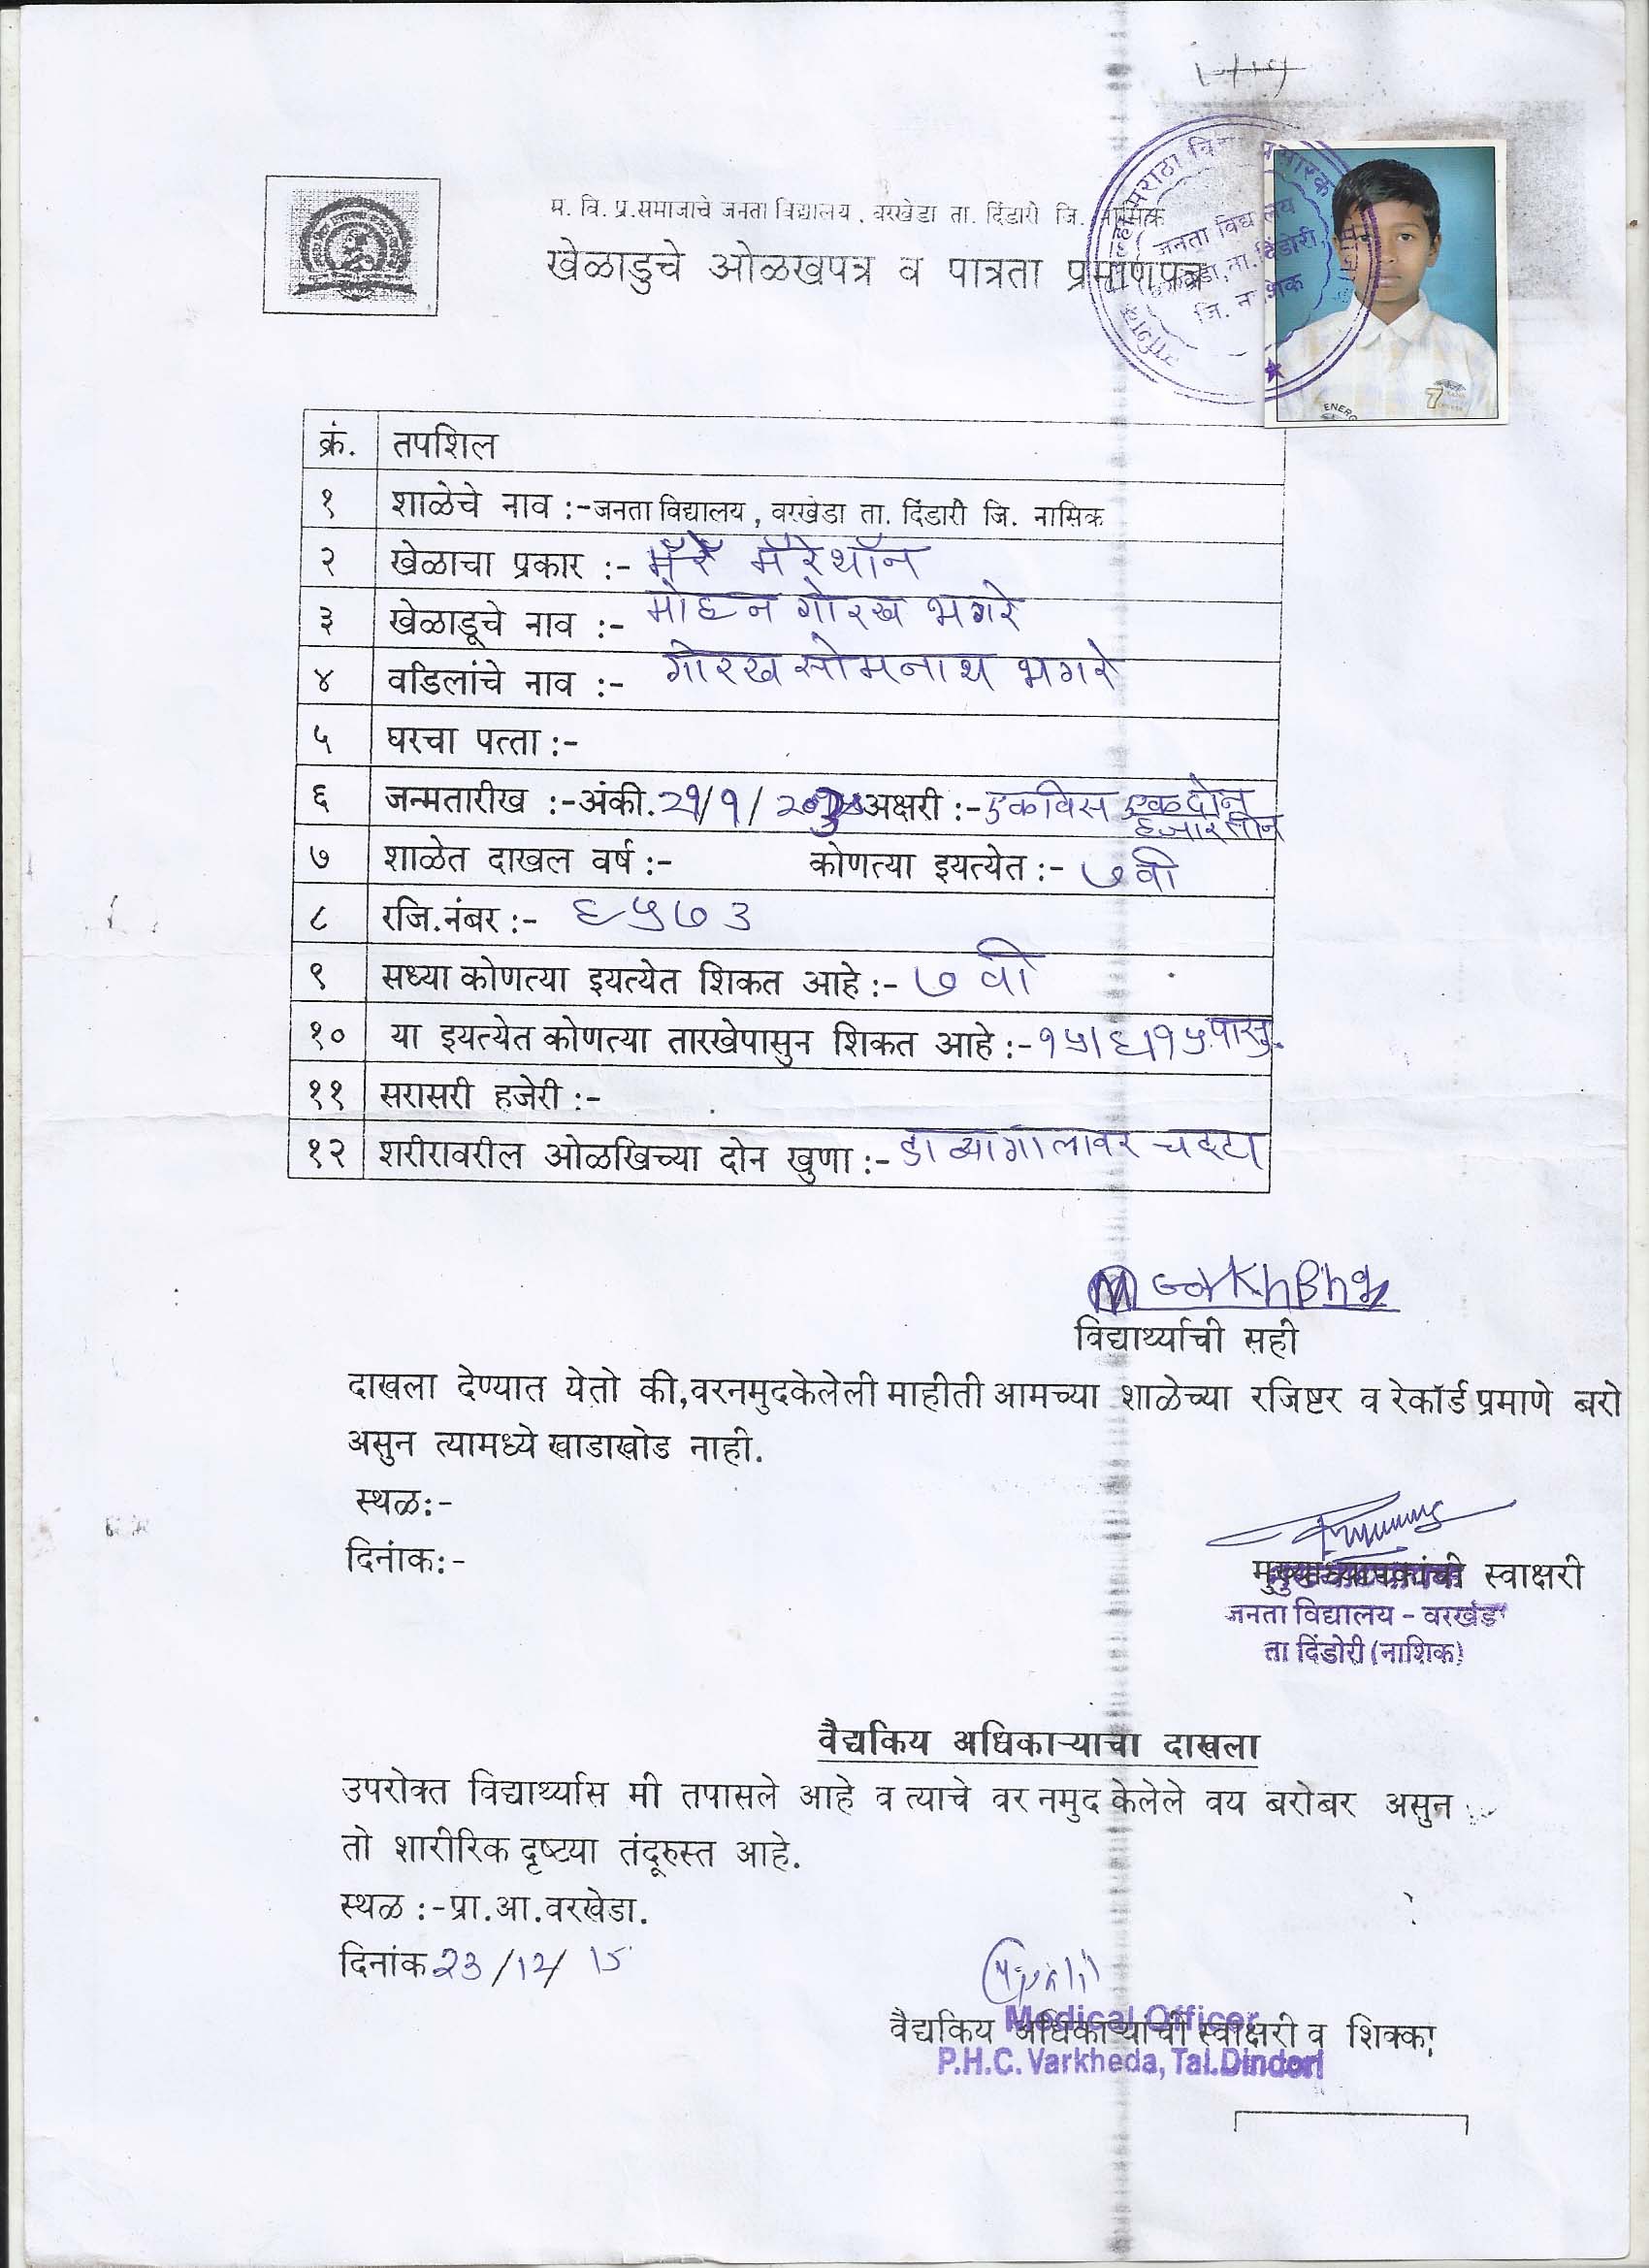 म. वि. प्र.समाजाचे जनता विद्यालय, वरखेडा ता. दिंडारी जि. नासिक
खेळाडुचे ओळखपत्र व पात्रता प्रमाणपत्र
जनता विद्यालय
ता. दिंडोरी
जि. नाशिक
क्रं. तपशिल
१ शाळेचे नाव :-जनता विद्यालय, वरखेडा ता. दिंडारी जि. नासिक
२ खेळाचा प्रकार :- मॅरेथॉन
३ खेळाडूचे नाव :- मोहन गोरख भगरे
४ वडिलांचे नाव :- गोरख सोमनाथ भगरे
५ घरचा पत्ता :-
६ जन्मतारीख :-अंकी. २१/१/ अक्षरी :- एकविस एक दोन हजार तीन
७ शाळेत दाखल वर्ष :- कोणत्या इयत्येत :- ७ वी
८ रजि.नंबर :- ६५७३
९ सध्या कोणत्या इयत्येत शिकत आहे :- ७ वी
१० या इयत्येत कोणत्या तारखेपासुन शिकत आहे :- १५/६/१५ पासु.
११ सरासरी हजेरी :-
१२ शरीरावरील ओळखिच्या दोन खुणा :- डाव्या गालावर चट्टा
Gorkh Bhg
विद्यार्थ्याची सही
दाखला देण्यात येतो की,वरनमुदकेलेली माहीती आमच्या शाळेच्या रजिष्टर व रेकॉर्ड प्रमाणे बरो
असुन त्यामध्ये खाडाखोड नाही.
स्थळ:-
दिनांक:-
मुख्याध्यापकांची स्वाक्षरी
जनता विद्यालय - वरखेडा
ता दिंडोरी (नाशिक)
वैद्यकिय अधिकाऱ्याचा दाखला
उपरोक्त विद्यार्थ्यास मी तपासले आहे व त्याचे वर नमुद केलेले वय बरोबर असुन
तो शारीरिक दृष्टया तंदूरुस्त आहे.
स्थळ :-प्रा.आ.वरखेडा.
दिनांक 23/12/15
Medical Officer
वैद्यकिय अधिकाऱ्यांची स्वाक्षरी व शिक्का
P.H.C. Varkheda, Tal.Dindori